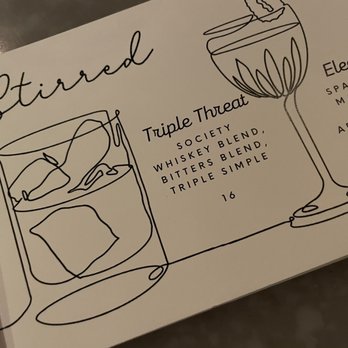 Stirred
Triple Threat
SOCIETY
WHISKEY BLEND,
BITTERS BLEND,
TRIPLE SIMPLE
16